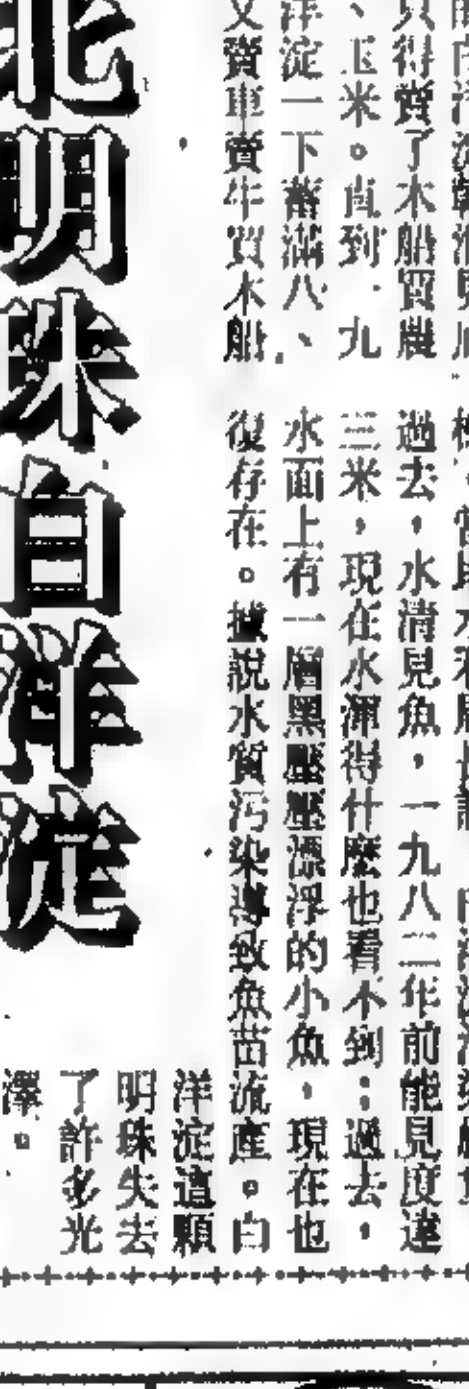 只得賣了木船買農
、玉米。直到一九
洋淀一下蓄滿八、
又賣車賣牛買木船
過去，水清見魚，一九八二年前能見度達
三米，現在水渾得什麼也看不到；過去，
水面上有一層黑壓壓漂浮的小魚，現在也
復存在。據說水質污染導致魚苗流產。白
洋淀這顆
明珠失去
了許多光
澤。
北明珠白洋淀